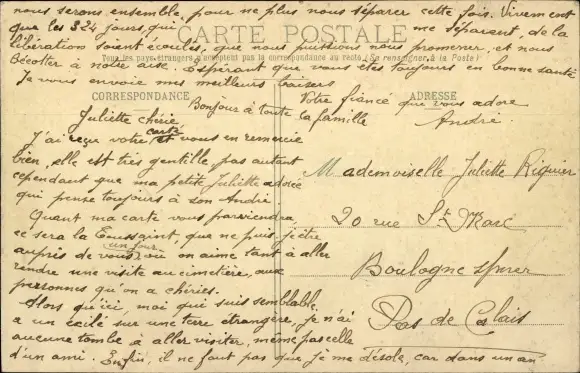 nous serons ensemble, pour ne plus nous séparer cette fois. Vivement
que les 324 jours, qui me séparent, de la
CARTE POSTALE
libération soient écoulés, que nous puissions nous promener, et nous
Bécotter à notre aise. Espérant que vous êtes toujours en bonne santé
Tous les pays étrangers n'acceptent pas la correspondance au recto (Se renseigner à la Poste)
Je vous envoie mes meilleurs baisers
CORRESPONDANCE
Votre fiancé que vous adore
ADRESSE
Bonjour à toute la famille
André
Juliette chérie
J'ai reçue votre carte et vous en remercie
bien, elle est très gentille pas autant
cependant que ma petite Juliette adorée
qui pense toujours à son André
Quant ma carte vous parviendra,
ce sera la Toussaint, que ne puis-je être
auprès de vous, un jour où on aime tant à aller
rendre une visite au cimetière, aux
personnes qu'on a chéries.
Alors qu'ici, moi qui suis semblable,
a un exilé sur une terre étrangère, je n'ai
aucune tombe à aller visiter, même pas celle
d'un ami. Enfin, il ne faut pas que je me désole, car dans un an
Mademoiselle Juliette Riguier
20 rue St Marc
Boulogne s/mer
Pas de Calais